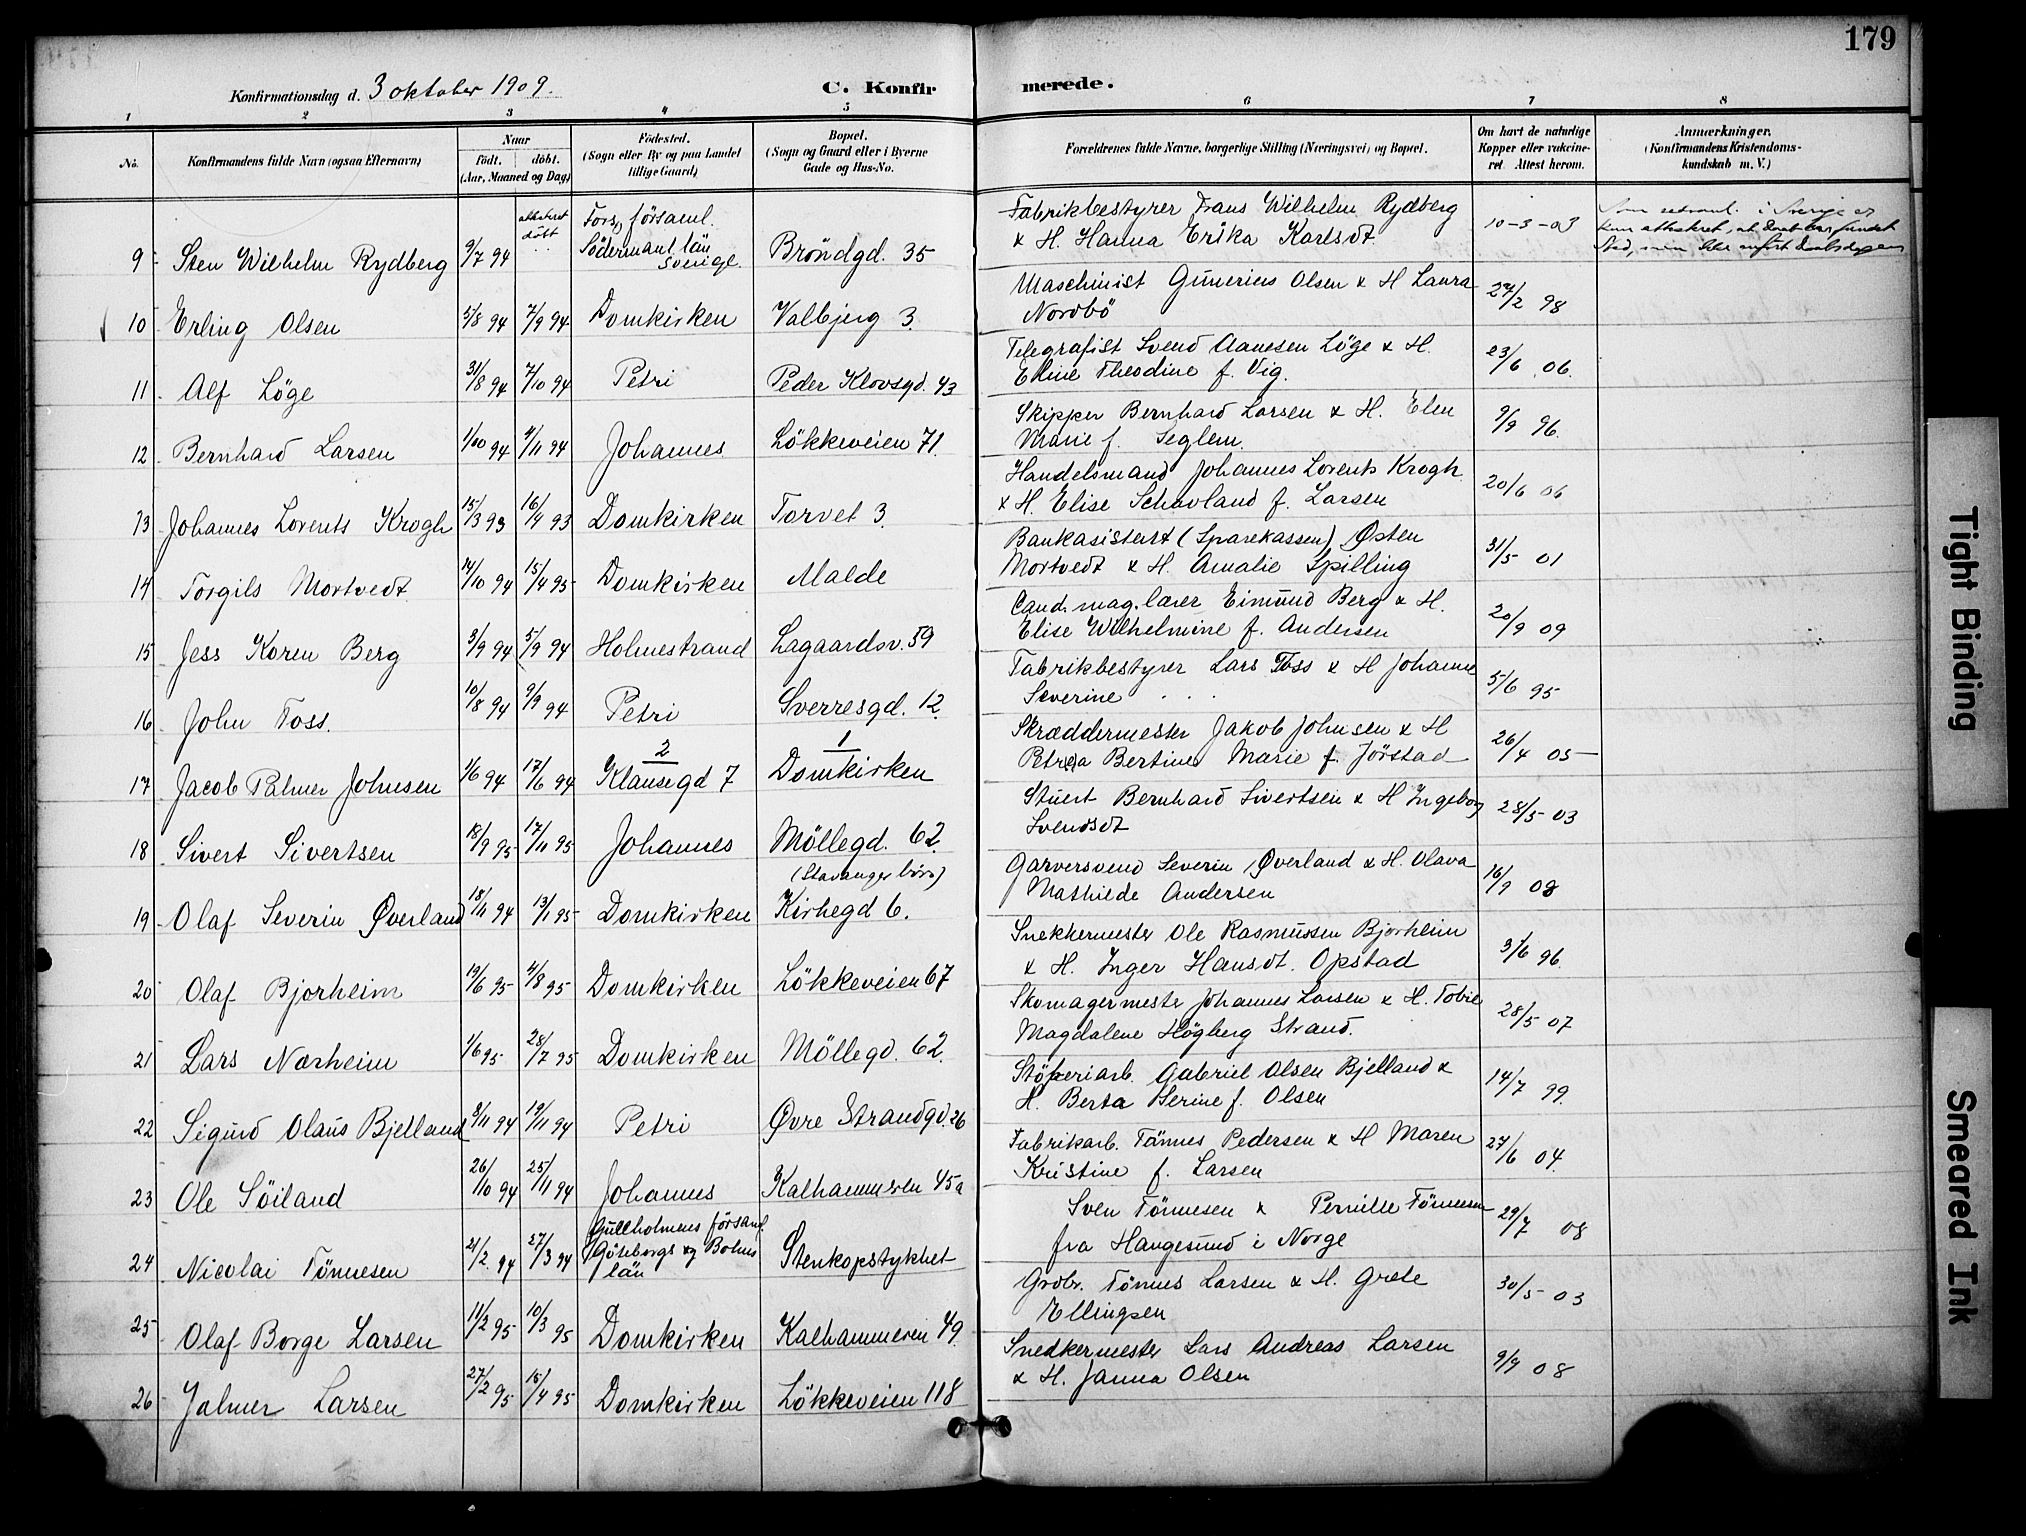 179
Konfirmationsdag d. 3 oktober 1909.
C. Konfirmerede.
1 2 3 4 5 6 7 8
No.
Konfirmandens fulde Navn (ogsaa Efternavn)
Naar
födt. döbt.
(Aar, Maaned og Dag)
Födested.
(Sogn eller By og paa Landet
tillige Gaard)
Bopæl.
(Sogn og Gaard eller i Byerne
Gade og Hus-No.
Forældrenes fulde Navne, borgerlige Stilling (Næringsvei) og Bopæl.
Om havt de naturlige
Kopper eller vakcine-
ret. Attest herom.
Anmærkninger.
(Konfirmandens Kristendoms-
kundskab m. V.)
9 Sten Wilhelm Rydberg 9/7 94 attesteret döbt Fors församl. Södermanl. län Sverige. Bröndgd. 35
Fabrikbestyrer Frans Wilhelm Rydberg
& H. Hanna Erika Karlsdt. 10-3-03
10 Erling Olsen 5/8 94 7/9 94 Domkirken Valbjerg 3.
Maschinist Gunerius Olsen & H Laura
Nordbö 27/2 98
11 Alf Löge 31/8 94 7/10 94 Petri Peder Klovsgd. 43
Telegrafist Svend Aanesen Löge & H.
Elline Theodine f. Vig. 23/6 06.
12 Bernhard Larsen 1/10 94 4/11 94 Johannes Lökkeveien 71.
Skipper Bernhard Larsen & H. Elen
Marie f. Seglem. 9/9 96.
13 Johannes Lorents Krogh 15/3 93 16/4 93 Domkirken Torvet 3.
Handelsmand Johannes Lorents Krogh
& H. Elise Schavland f. Larsen 20/6 06
14 Torgils Mortvedt 14/10 94 15/4 95 Domkirken Malde
Bankasistent (Sparekassen) Østen
Mortvedt & H. Amalie Spilling 31/5 01
15 Jess Koren Berg 3/9 94 5/9 94 Holmestrand Lagaardsv. 59
Cand. mag. lærer Eimund Berg & H.
Elise Wilhelmine f. Andersen 20/9 09
16 John Foss. 10/8 94 9/9 94 Petri Sverresgd. 12.
Fabrikbestyrer Lars Foss & H Johanne
Severine . . . 5/6 95
17 Jacob Palmer Johnsen 1/6 94 17/6 94 2 Klausegd 7 1 Domkirken
Skræddermester Jakob Johnsen & H
Petrea Bertine Marie f. Jörstad 26/4 05
18 Sivert Sivertsen 18/9 95 17/11 95 Johannes Möllegd. 62.
Stuert Bernhard Sivertsen & H Ingeborg
Svendsdt 28/5 03
19 Olaf Severin Øverland 18/11 94 13/1 95 Domkirken (Stavanger börs) Kirkegd 6.
Garversvend Severin Øverland & H. Olava
Mathilde Andersen 16/9 08
20 Olaf Bjorheim 19/6 95 4/8 95 Domkirken Lökkeveien 67
Snekkermester Ole Rasmussen Bjorheim
& H. Inger Hansdt. Opstad 3/6 96.
21 Lars Nærheim 1/6 95 28/7 95 Domkirken Möllegd. 62.
Skomagermester Johannes Larsen & H. Tobie
Magdalene Högberg Strand. 28/5 07
22 Sigurd Olaus Bjelland 3/11 94 19/11 94 Petri Øvre Strandgd. 26
Stöberiarb. Gabriel Olsen Bjelland &
H. Berta Serine f. Olsen 14/7 99.
23 Ole Söiland 26/10 94 25/11 94 Johannes Kalhammeren 45a
Fabrikarb. Tönnes Pedersen & H Maren
Kristine f. Larsen 27/6 04.
24 Nicolai Tönnesen 21/2 94 27/3 94 Gullholmens församl. Göteborgs og Bohus län Stenkopstykket
Sven Tönnesen & Pernille Tönnesen
fra Haugesund i Norge 29/7 08
25 Olaf Borge Larsen 11/2 95 10/3 95 Domkirken Kalhammeren 49.
Grovr. Tönnes Larsen & H. Grete
Ellingsen 30/5 03
26 Jalmer Larsen 27/2 95 15/4 95 Domkirken Lökkeveien 118
Snedkermester Lars Andreas Larsen
& H. Janna Olsen 9/9 08
Tight Binding
Smeared Ink